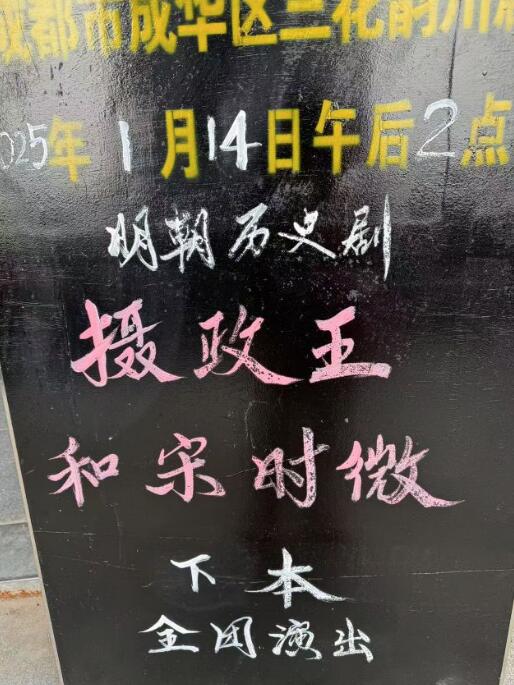 成都市成华区三花韵川剧
2025年1月14日午后2点
明朝历史剧
摄政王
和宋时微
下本
全团演出